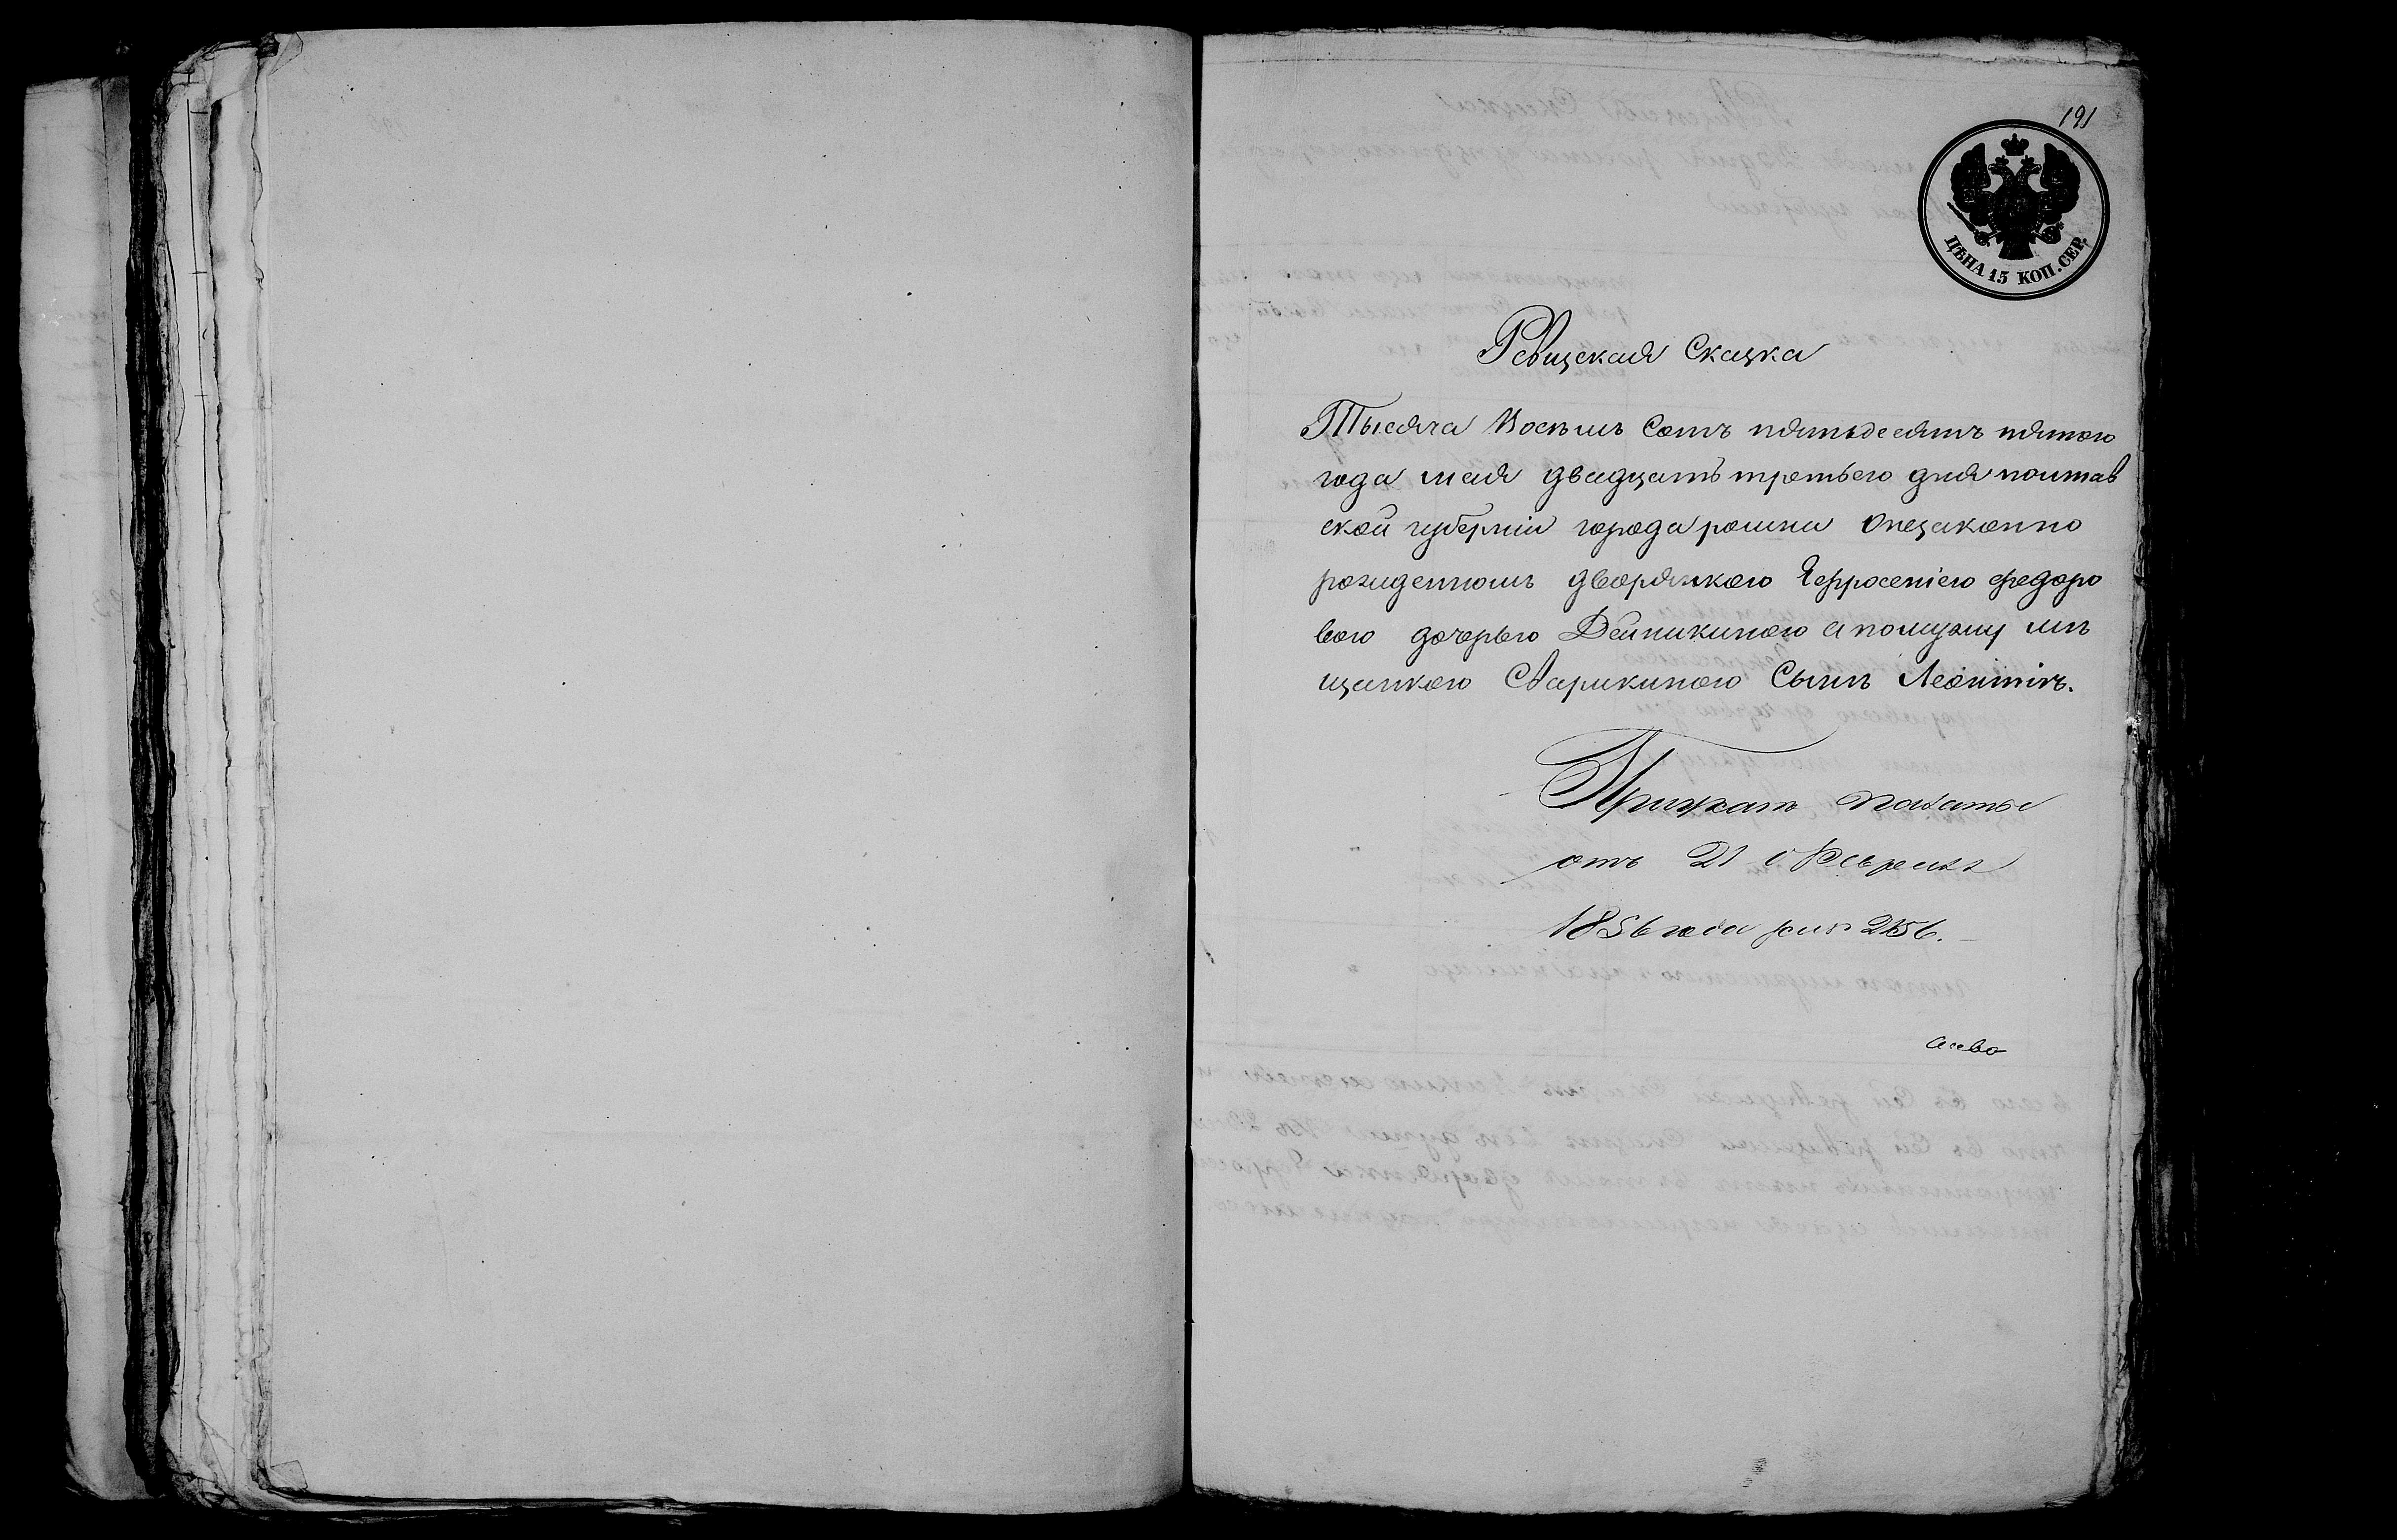 191
ЦѢНА 15 КОП. СЕР.
Ревизская Сказка
Тысяча Восемь Сотъ пятьдесятъ пятого
года мая двадцать третьего дня полтав
ской губерніи города ромна Онезаконно
рожденномъ дворянкою Ефросеніею федоро
вою дочерью Дейникиною а помужу мѣ
щанкою Ларикиною Сынѣ Леонтіи.
Приказъ палаты
отъ 21 Февраля
1856 года за № 2156.